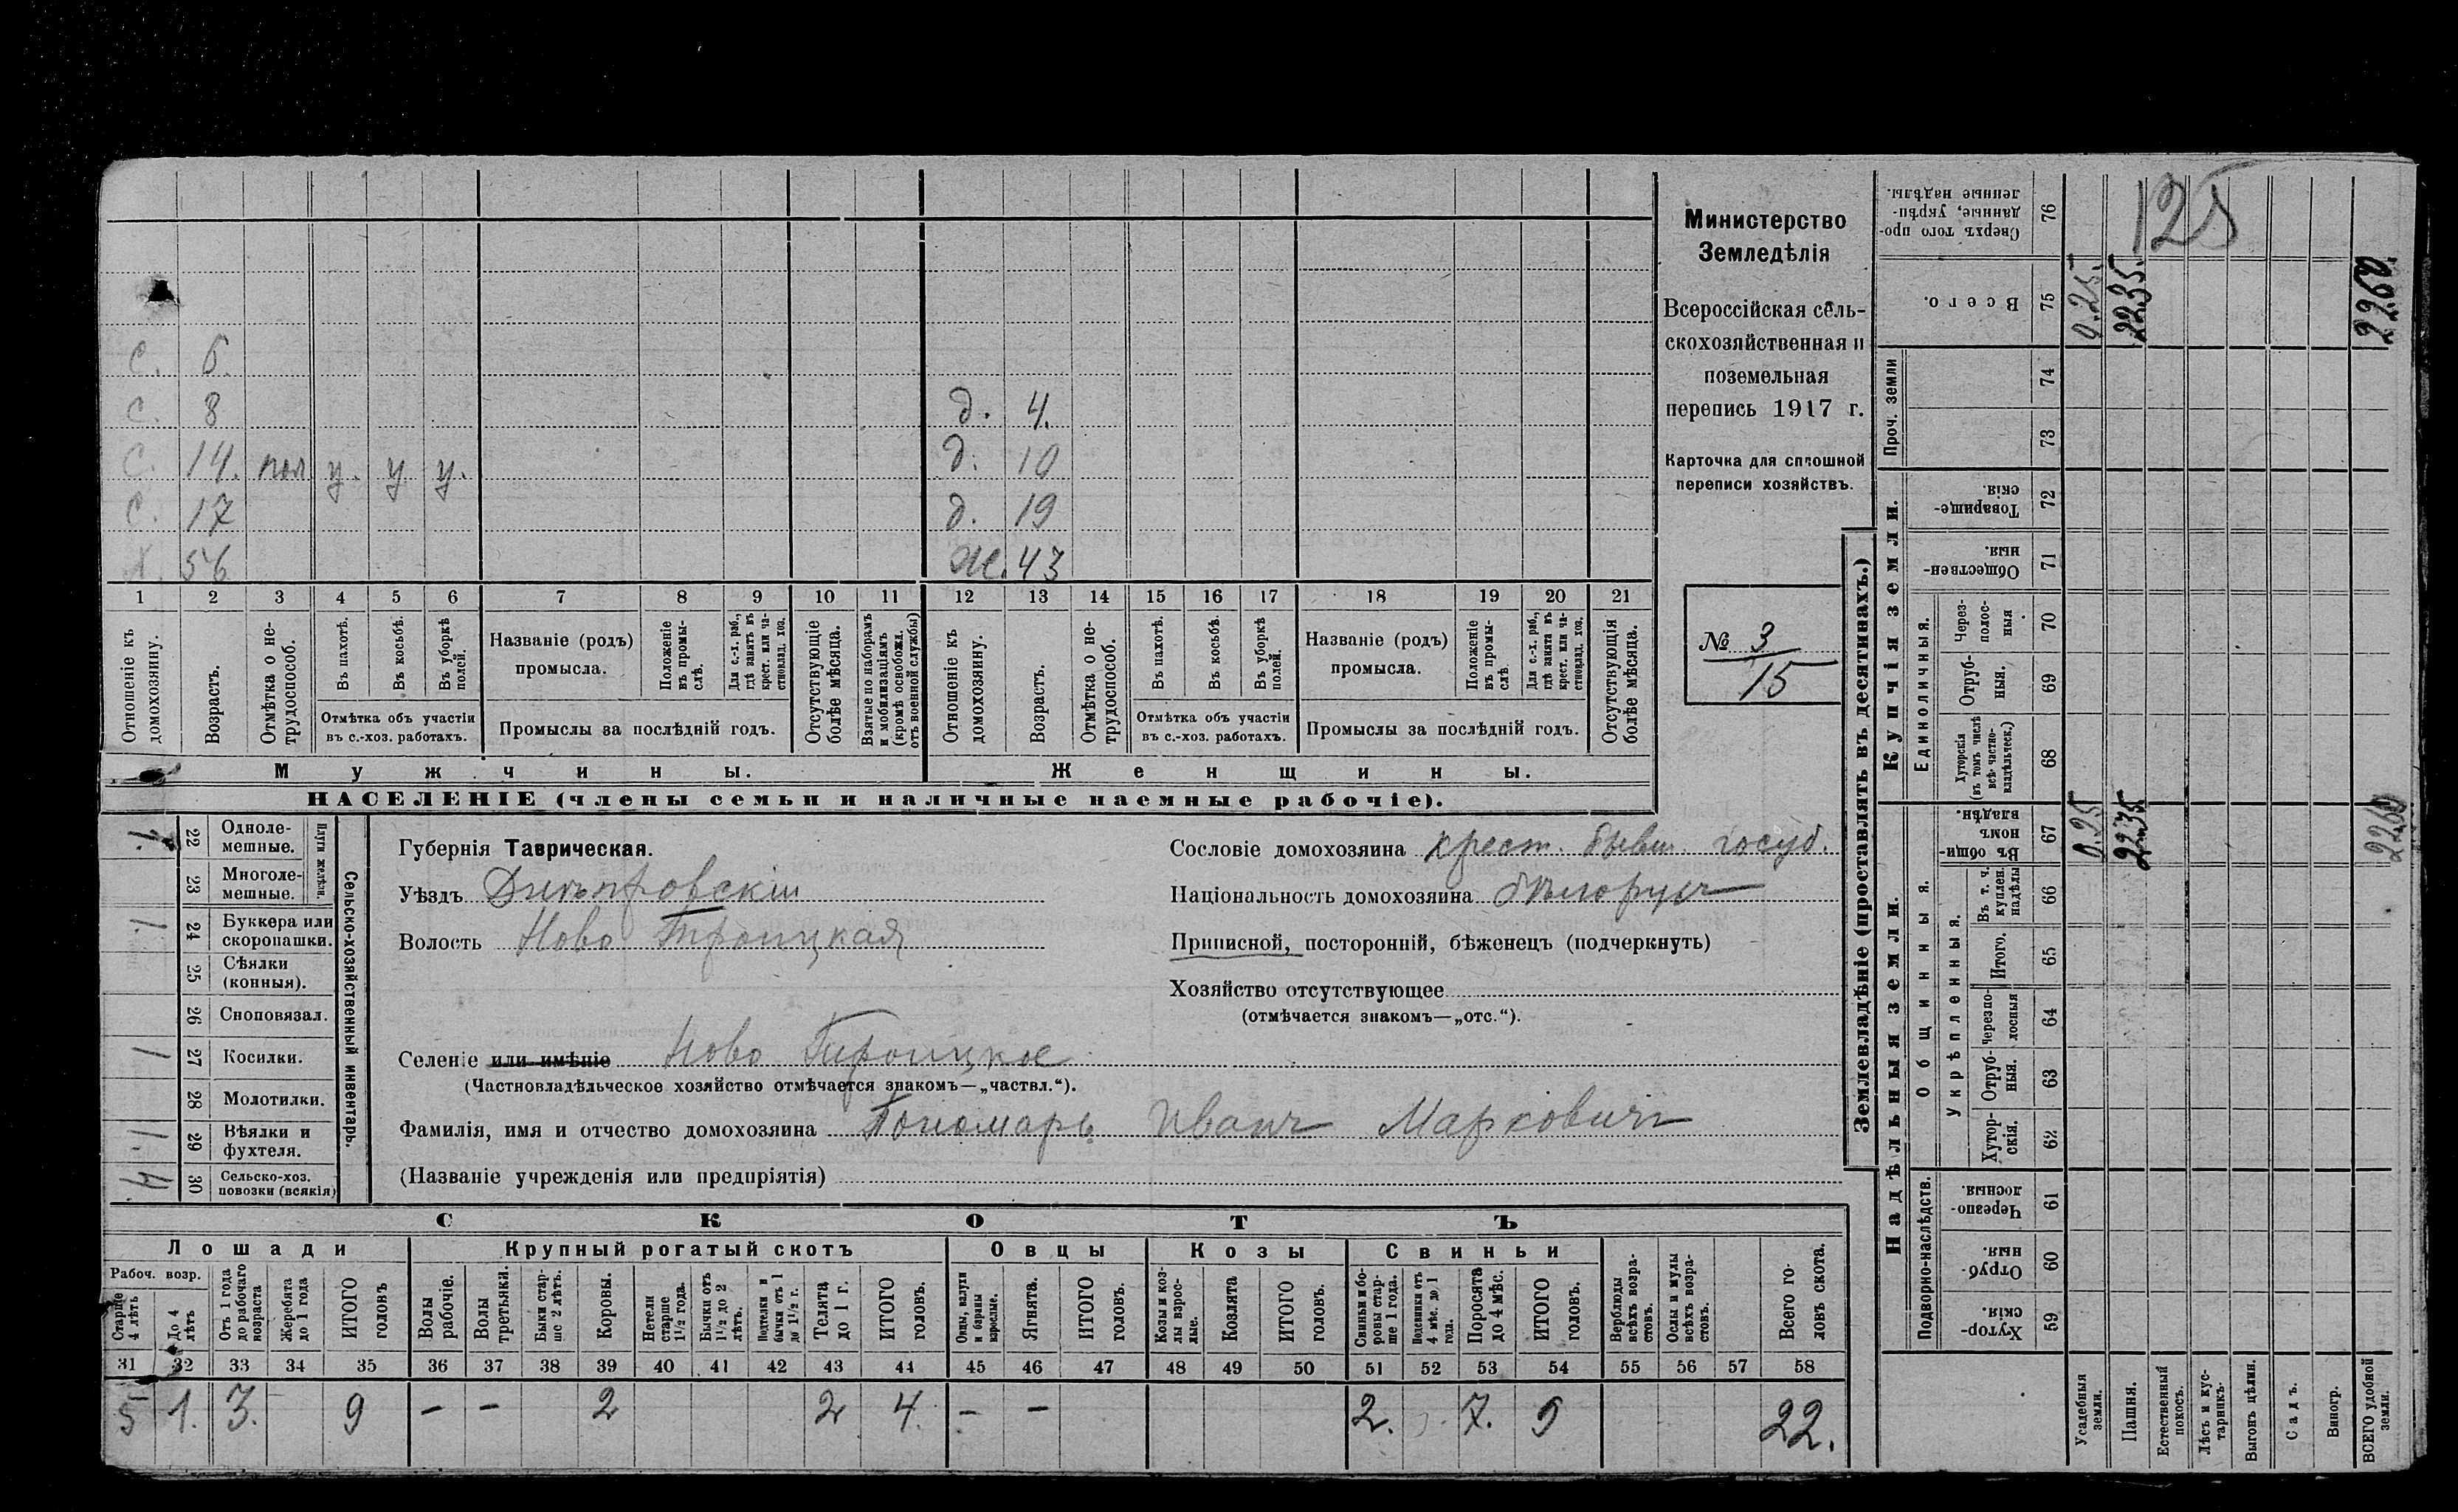 С. 6.
С. 8 д. 4.
С. 14. пол у. у у. д. 10
С. 17 д. 19
Х. 56 Ж. 43
1 2 3 4 5 6 7 8 9 10 11 12 13 14 15 16 17 18 19 20 21
Отношеніе къ домохозяину.
Возрастъ.
Отмѣтка о не-
трудоспособ.
Въ пахотѣ.
Въ косьбѣ.
Въ уборкѣ
полей.
Отмѣтка объ участіи
въ с.-хоз. работахъ.
Названіе (родъ)
промысла.
Положеніе
въ промы-
слѣ.
Для с.-х. раб.,
гдѣ занятъ въ
крест. или ча-
стновлад. хоз.
Промыслы за послѣдній годъ.
Отсутствующіе
болѣе мѣсяца.
Взятые по наборамъ
и мобилизаціямъ
(кромѣ освобожд.
отъ военной службы)
Отношеніе къ
домохозяину.
Возрастъ.
Отмѣтка о не-
трудоспособ.
Въ пахотѣ.
Въ косьбѣ.
Въ уборкѣ
полей.
Отмѣтка объ участіи
въ с.-хоз. работахъ.
Названіе (родъ)
промысла.
Положеніе
въ промы-
слѣ.
Для с.-х. раб.,
гдѣ занята въ
крест. или ча-
стновлад. хоз.
Промыслы за послѣдній годъ.
Отсутствующія
болѣе мѣсяца.
Мужчины. Женщины.
НАСЕЛЕНІЕ (члены семьи и наличные наемные рабочіе).
Министерство
Земледѣлія
Всероссійская сель-
скохозяйственная и
поземельная
перепись 1917 г.
Карточка для сплошной
переписи хозяйствъ.
№ 3
15
1 22 Одноле-
мешные.
23 Многоле-
мешные.
Плуги желѣзн.
1 24 Буккера или
скоропашки.
25 Сѣялки
(конныя).
26 Сноповязал.
1 27 Косилки.
28 Молотилки.
1 29 Вѣялки и
фухтеля.
4 30 Сельско-хоз.
повозки (всякія)
Сельско-хозяйственный инвентарь.
Губернія Таврическая.
Уѣздъ Днѣпровскій
Волость Ново Троицкая
Селеніе или имѣніе Ново Троицкое
(Частновладѣльческое хозяйство отмѣчается знакомъ—„частвл.“).
Фамилія, имя и отчество домохозяина Пономарь Иванъ Марковичъ
(Названіе учрежденія или предпріятія)
Сословіе домохозяина крест. бывш. госуд.
Національность домохозяина бѣлорусъ
Приписной, посторонній, бѣженецъ (подчеркнуть)
Хозяйство отсутствующее
(отмѣчается знакомъ—„отс.“).
СКОТЪ
Лошади Крупный рогатый скотъ Овцы Козы Свиньи
Рабоч. возр.
Старше
4 лѣтъ
До 4
лѣтъ
Отъ 1 года
до рабочаго
возраста
Жеребята
до 1 года
ИТОГО
головъ
Волы
рабочіе.
Волы
третьяки.
Быки стар-
ше 2 лѣтъ.
Коровы.
Нетели
старше
1½ года.
Бычки отъ
1½ до 2
лѣтъ.
Подтелки и
бычки отъ 1
до 1½ г.
Телята
до 1 г.
ИТОГО
головъ.
Овцы, валухи
и бараны
взрослые.
Ягнята.
ИТОГО
головъ.
Козы и коз-
лы взрос-
лые.
Козлята
ИТОГО
головъ.
Свиньи и бо-
ровы стар-
ше 1 года.
Подсвинки отъ
4 мѣс. до 1
года.
Поросята
до 4 мѣс.
ИТОГО
головъ.
Верблюды
всѣхъ возра-
стовъ.
Ослы и мулы
всѣхъ возра-
стовъ.
Всего го-
ловъ скота.
31 32 33 34 35 36 37 38 39 40 41 42 43 44 45 46 47 48 49 50 51 52 53 54 55 56 57 58
5 1. 3. 9 – – 2 2 4. – – 2. 7. 9 22.
Землевладѣніе (проставлять въ десятинахъ.)
125
76 Сверхъ того про-
данные, укрѣп-
ленные надѣлы.
75 Всего. 0.25. 22.35. 22.60.
Проч. земли
74
73
Купчія земли.
72 Товарище-
скія.
71 Обществен-
ныя.
Единоличныя.
70 Через-
полос-
ныя
69 Отруб-
ныя.
68 Хуторскія
(въ томъ числѣ
всѣ частно-
владѣльческ.)
Надѣльныя земли.
Общинныя.
67 Въ общи-
номъ
владѣн. 0.25 22.35 22.60
Укрѣпленныя.
66 Въ т. ч.
куплен.
надѣлы
65 Итого.
64 Черезпо-
лосныя
63 Отруб-
ныя.
62 Хутор-
скія.
Подворно-наслѣдств.
61 Черезпо-
лосныя.
60 Отруб-
ныя.
59 Хутор-
скія.
Усадебныя
земли.
Пашня.
Естественный
покосъ.
Лѣсъ и кус-
тарникъ.
Выгонъ цѣлин.
Садъ.
Виногр.
ВСЕГО удобной
земли.